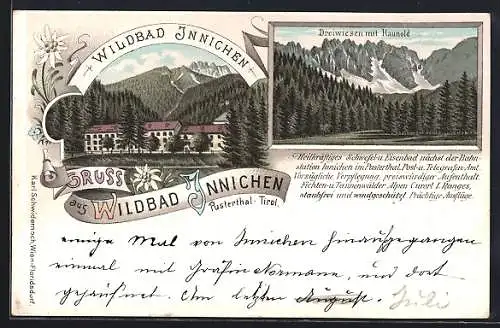 WILDBAD INNICHEN
Dreiwiesen mit Haunold
Heilkräftiges Schwefel-u. Eisenbad nächst der Bahn-
station Innichen im Pusterthal. Post-u. Telegrafen-Amt.
Vorzügliche Verpflegung, preiswürdiger Aufenthalt.
Fichten-u Tannenwälder. Alpen Curort I. Ranges,
staubfrei und windgeschützt. Prächtige Ausflüge.
GRUSS
aus WILDBAD INNICHEN
Pusterthal-Tirol.
Karl Schwidernoch, Wien-Floridsdorf.
einige Mal von Innichen hinausgegangen
einmal mit Gräfin Normann, und dort
gejausnet. Am letzten August. Juli